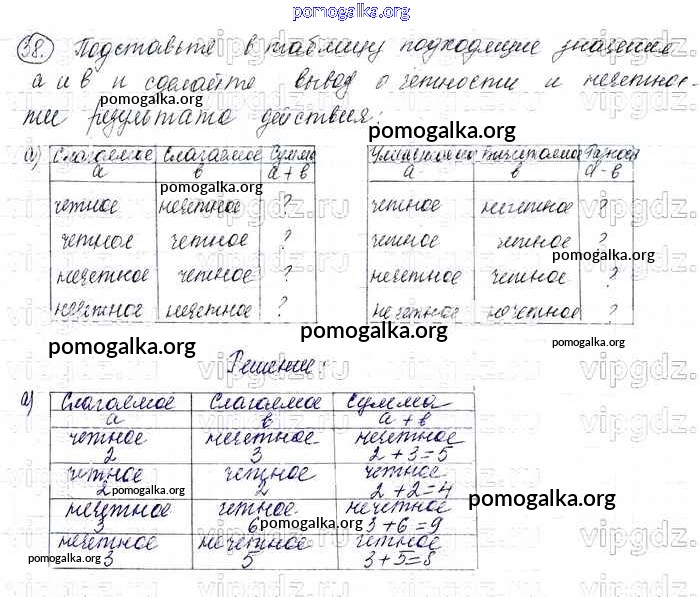 pomogalka.org
38. Подставьте в таблицу подходящие значения
а и в и сделайте вывод о четности и нечетнос-
ти результата действия:
pomogalka.org
pomogalka.org
а) Слагаемое Слагаемое Сумма Уменьшаемое Вычитаемое Разность
а в а + в а в а - в
pomogalka.org
четное нечетное ? четное нечетное ?
четное четное ? четное четное ?
pomogalka.org
нечетное четное ? нечетное четное ?
нечетное нечетное ? нечетное нечетное ?
pomogalka.org
pomogalka.org
pomogalka.org
Решение:
а) Слагаемое Слагаемое Сумма
а в а + в
четное нечетное нечетное
2 3 2 + 3 = 5
четное четное четное
2 2 2 + 2 = 4
pomogalka.org
pomogalka.org
нечетное четное нечетное
3 6 3 + 6 = 9
pomogalka.org
нечетное нечетное четное
3 5 3 + 5 = 8
pomogalka.org
pomogalka.org